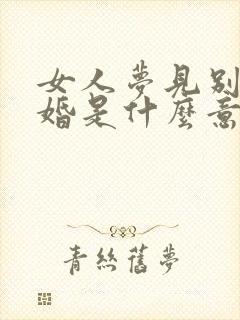 女人夢見別
婚是什麼意
青絲舊夢